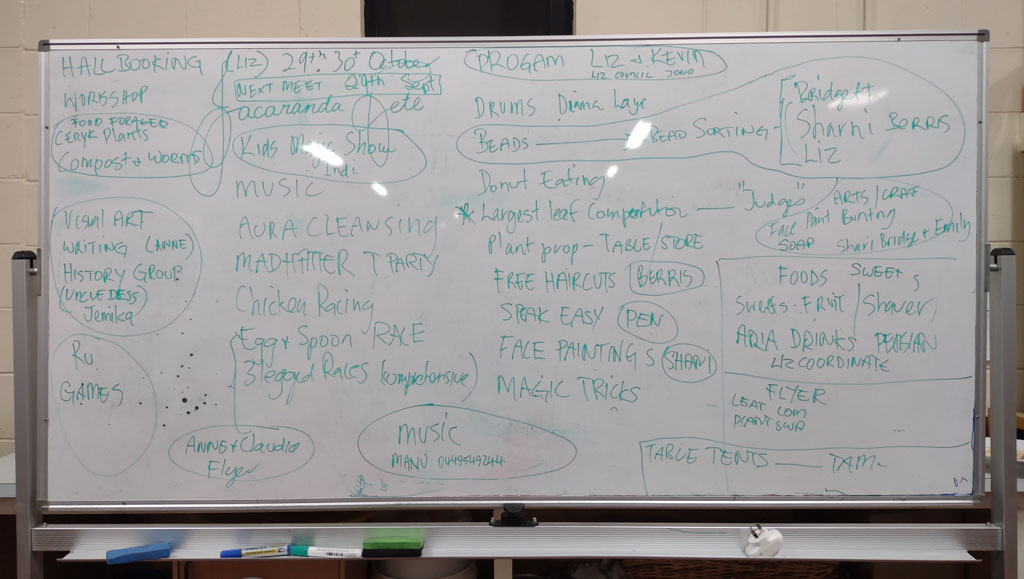 HALL BOOKING
(LIZ) 29th 30th October
NEXT MEET 29th Sept
acaranda fete
WORKSHOP
FOOD FORAGED
Plants
Compost & worms
Kids Magic Show
Indi
MUSIC
AURA CLEANSING
MADHATTER T PARTY
Chicken Racing
Egg & Spoon RACE
3 legged Races (comprehensive)
Visual ART
WRITING (ANNE)
HISTORY GROUP
(UNCLE DESS)
Jemika
Ru
GAMES
ANNE & Claudio
Flyer
music
MANU 0449549244
PROGAM LIZ & KEVIN
LIZ COUNCIL JONO
DRUMS Diama Laye
BEADS — BEAD SORTING -
Bridgett
Sharni BERRIS
LIZ
Donut Eating
* Largest leaf Competition — "Judges"
Plant prop - TABLE/STORE
FREE HAIRCUTS BERRIS
SPEAK EASY PEN
FACE PAINTING S SHARNI
MAGIC TRICKS
ARTS/CRAF
Face Paint Bunting
SOAP Shari Bridge & Emily
FOODS SWEET S
SWEETS. FRUIT / Shaver,
DRINKS PERSIAN
LIZ COORDINATE
FLYER
LEAF COM
PLANT SWAP
TABLE TENTS — TAM